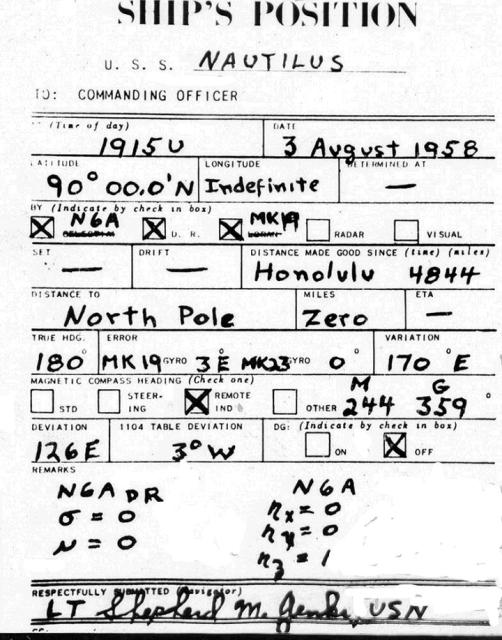 SHIP'S POSITION
U. S. S. NAUTILUS
TO: COMMANDING OFFICER
(Time of day) DATE
1915U 3 August 1958
LATITUDE LONGITUDE DETERMINED AT
90° 00.0'N Indefinite —
BY (Indicate by check in box)
N6A MK19
CELESTIAL D. R. LORAN RADAR VISUAL
SET DRIFT DISTANCE MADE GOOD SINCE (time) (miles)
— — Honolulu 4844
DISTANCE TO MILES ETA
North Pole Zero —
TRUE HDG. ERROR VARIATION
180° MK19 GYRO 3°E MK23 GYRO 0° 170°E
MAGNETIC COMPASS HEADING (Check one)
M G
STD STEERING REMOTE IND OTHER 244 359°
DEVIATION 1104 TABLE DEVIATION DG: (Indicate by check in box)
126E 3°W ON OFF
REMARKS
N6A DR N6A
σ = 0 nx = 0
μ = 0 ny = 0
nz = 1
RESPECTFULLY SUBMITTED (Navigator)
LT Shepherd M. Jenks, USN